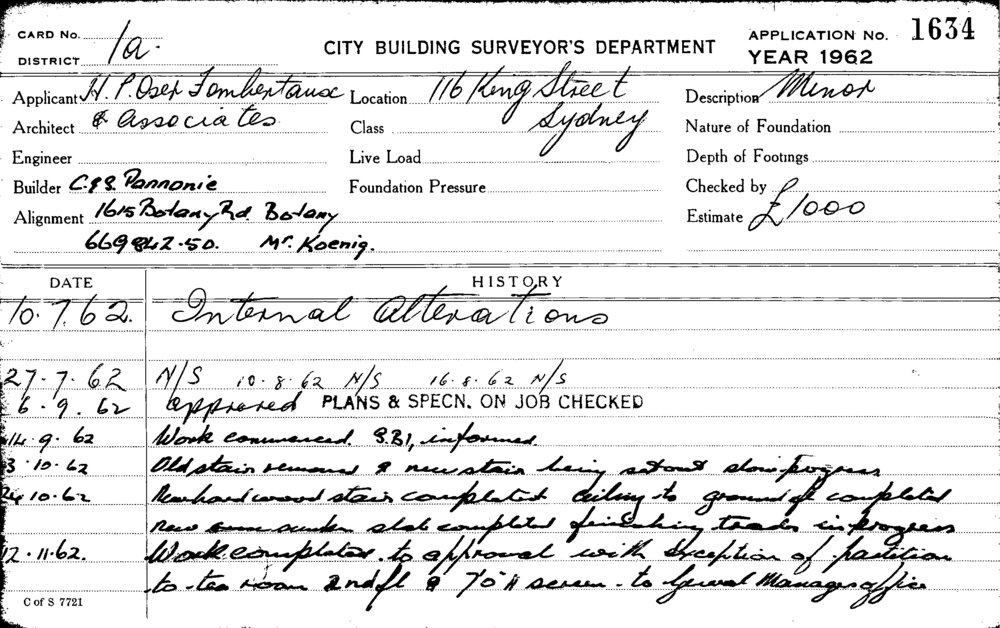 CARD No.
DISTRICT 1a.
CITY BUILDING SURVEYOR'S DEPARTMENT
APPLICATION No. 1634
YEAR 1962
Applicant H. P. Oser Fombertaux Location 116 King Street Description Minor
Architect & Associates Class Sydney Nature of Foundation
Engineer Live Load Depth of Footings
Builder C. & S. Pannonie Foundation Pressure Checked by
Alignment 1615 Botany Rd. Botany Estimate £1000
669842-50. Mr. Koenig.
DATE HISTORY
10.7.62. Internal Alterations
27.7.62 N/S 10.8.62 N/S 16.8.62 N/S
6.9.62 approved PLANS & SPECN. ON JOB CHECKED
14.9.62 Work commenced. S.B.I, informed.
3.10.62 Old stair removed & new stair being set out slow progress
24.10.62 New hardwood stair completed ceiling to ground fl completed
New sunken slab completed finishing trades in progress
12.11.62. Work completed to approval with exception of partition
to tea room 2nd fl & 7'0" H screen to General Managers office
C of S 7721